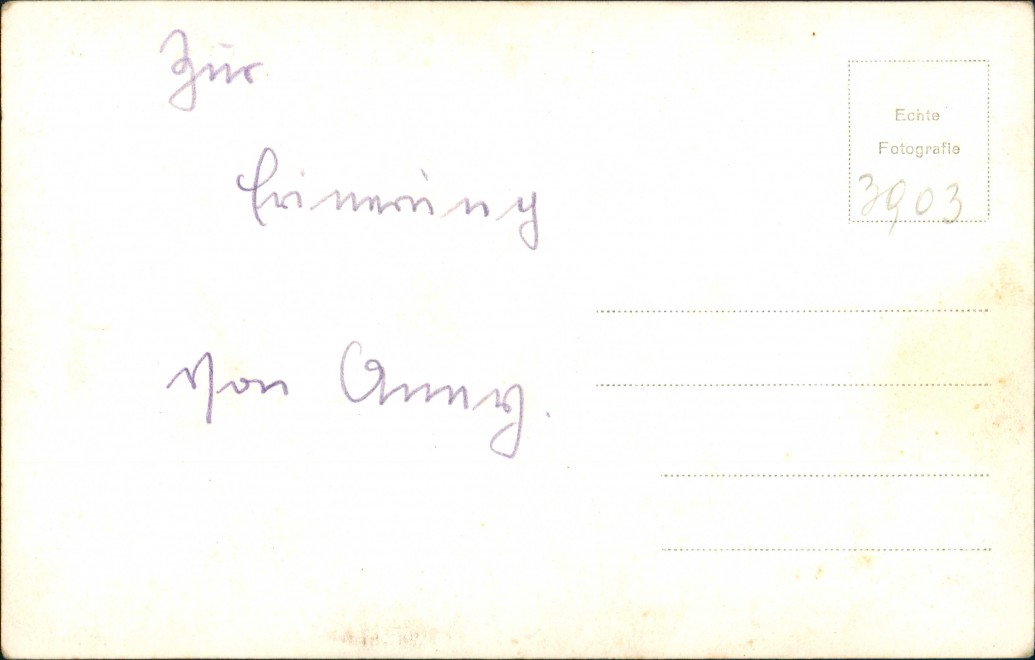 Zur
Erinerung
von Anny.
Echte
Fotografie
3903